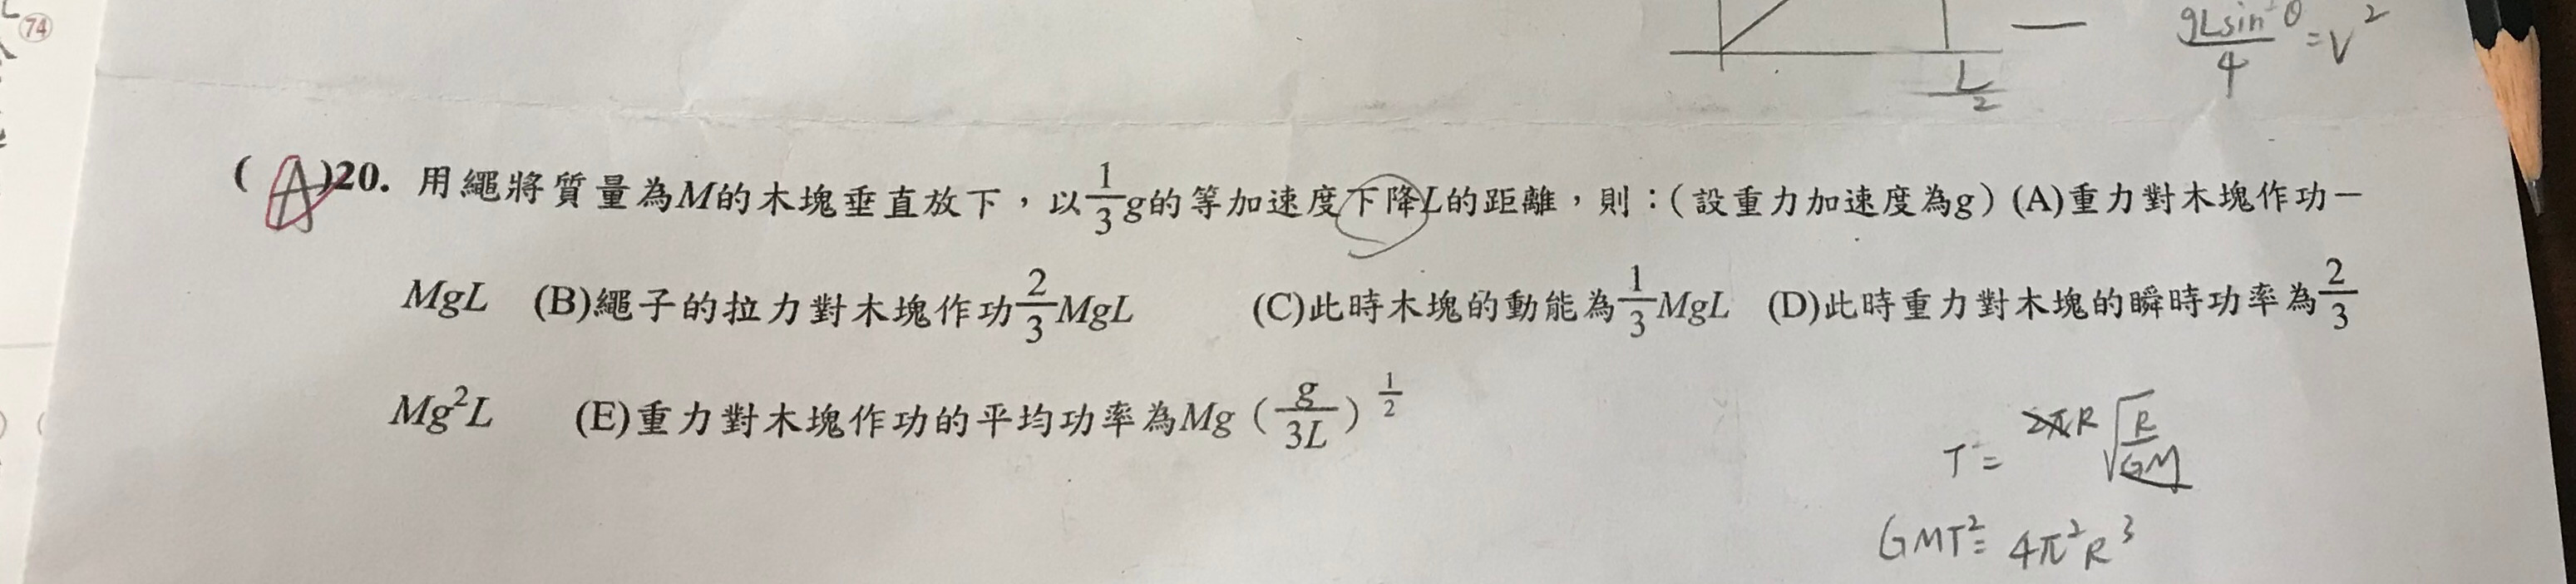 74
L/2
gLsin²θ/4 = V²
( A )20. 用繩將質量為M的木塊垂直放下，以1/3g的等加速度下降L的距離，則：(設重力加速度為g) (A)重力對木塊作功－
MgL (B)繩子的拉力對木塊作功2/3MgL (C)此時木塊的動能為1/3MgL (D)此時重力對木塊的瞬時功率為2/3
Mg²L (E)重力對木塊作功的平均功率為Mg（g/3L）^1/2
T = 2πR√(R/GM)
GMT² = 4π²R³